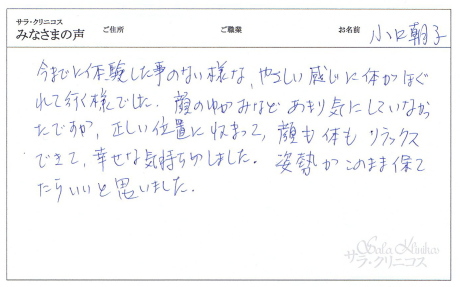 サラ・クリニコス
みなさまの声 ご住所 ご職業 お名前 小口朝子
今までに体験した事のない様な、やさしい感じに体がほぐ
れて行く様でした。顔のゆがみなど あまり気にしていなかっ
たですが、正しい位置に収まって、顔も体も リラックス
できて、幸せな気持ちがしました。 姿勢がこのまま保て
たらいいと思いました。
Sala Klinikos
サラ・クリニコス